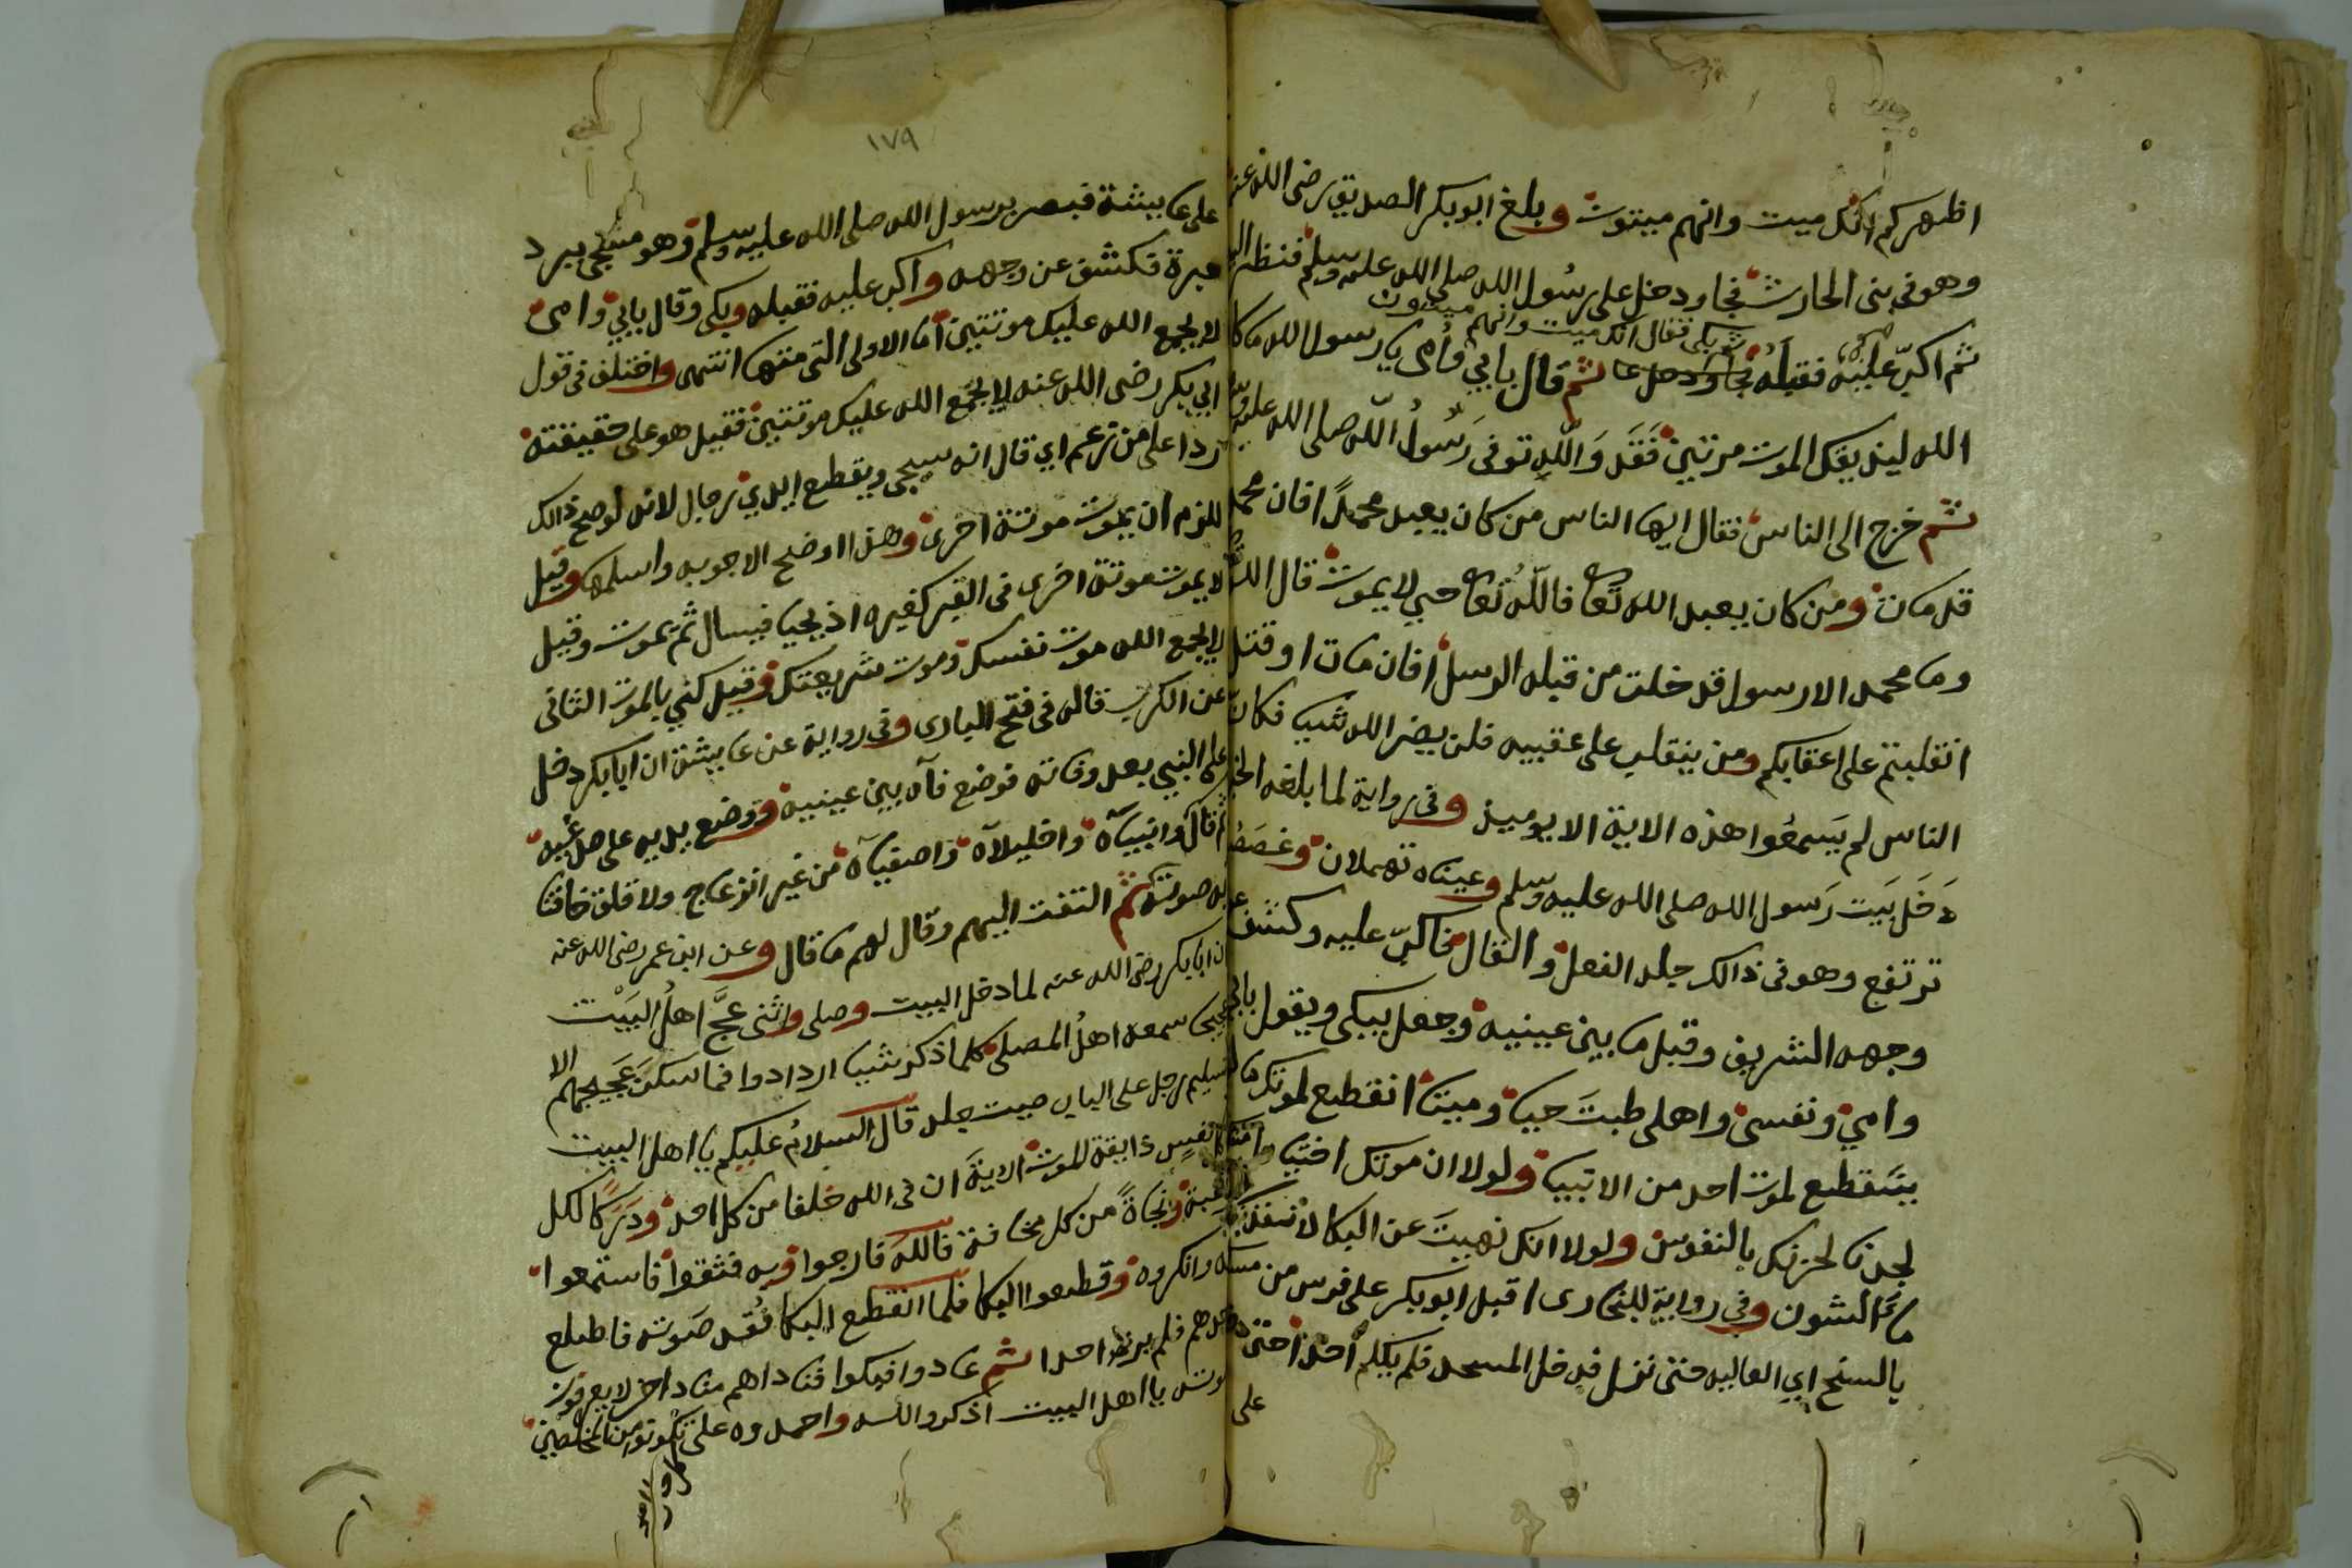 اظهركم انك ميت وانهم ميتون وبلغ ابو بكر الصديق رضى الله عنه
وهو فى بنى الحارث فجاء ودخل على رسول الله صلى الله عليه وسلم فنظر اليه
ثم بكى فقال انك ميت وانهم ميتون
ثم اكبّ عليه فقبله ثم قال بابي وأمى يا رسول الله ما كان
الله ليذيقك الموت مرتين فقد والله توفى رسول الله صلى الله عليه وسلم
ثم خرج الى الناس فقال ايها الناس من كان يعبد محمدًا فان محمدا
قد مات ومن كان يعبد الله تعا فالله تعا حي لا يموت قال الله
وما محمد الا رسول قد خلت من قبله الرسل افان مات او قتل
انقلبتم على اعقابكم ومن ينقلب على عقبيه فلن يضر الله شيا فكان
الناس لم يسمعوا هذه الاية الا يوميذ وفى رواية لما بلغه الخبر
دخل بيت رسول الله صلى الله عليه وسلم وعيناه تهملان وغصصه
ترتفع وهو فى ذالك جلد الفعل والقال فاكبّ عليه وكشف عن
وجهه الشريف وقبل ما بين عينيه وجعل يبكى ويقول بابي
وامي ونفسى واهلى طبت حيا وميتا انقطع لموتك ما
ينقطع لموت احد من الانبيا ولولا ان موتك اختيا
لجدنا لحزنك بالنفوس ولولا انك نهيت عن البكا لانفدنا
ماء الشون وفي رواية للبخارى اقبل ابو بكر على فرس من مسكنه
بالسنح اي العاليه حتى نزل فدخل المسجد فلم يكلم احدا حتى دخل
على
١٧٩
على عايشة فبصر برسول الله صلى الله عليه وسلم وهو مسجى ببرد
حبرة فكشف عن وجهه واكب عليه فقبله وبكى وقال بابي وامى
لا يجمع الله عليك موتتين أما الاولى التى متها انتهى واختلف فى قول
ابي بكر رضى الله عنه لا يجمع الله عليك موتتين فقيل هو على حقيقته
ردا على من زعم اي قال انه سيجى ويقطع ايدي رجال لانه لو صح ذالك
للزم ان يموت موتة اخرى وهذا اوضح الاجوبه واسلمها وقيل
لا يموت موتة اخرى فى القبر كغيره اذ يحيا فيسال ثم يموت وقيل
لا يجمع الله موت نفسك وموت شريعتك وقيل كني بالموت الثانى
عن الكرب قاله فى فتح البارى وفى رواية عن عايشة ان ابا بكر دخل
على النبي بعد وفاته فوضع فاه بين عينيه ووضع يديه على صدغيه
ثم قال وانبياه واخليلاه واصفياه من غير انزعاج ولا قلق خافتا
به صوته ثم التفت اليهم وقال لهم ما قال وعن ابن عمر رضى الله عنه
ان ابا بكر رضى الله عنه لما دخل البيت وصلى واثنى عجّ اهل البيت
عجيجا سمعه اهل المصلى كلما ذكر شيا ازدادوا فما سكن عجيجهم الا
تسليم رجل على الباب صيت جلد قال السلام عليكم يا اهل البيت
كل نفسٍ ذايقة الموت الاية ان فى الله خلفا من كل احد ودركًا لكل
رغبة ونجاةً من كل مخافة فالله فارجوا وبه فثقوا فاستمعوا
له وانكروه وقطعوا البكا فلما انقطع البكا فقد صوته فاطلع
احدهم فلم ير احدا ثم عادوا فبكوا فناداهم مناد اخر لا يعرفون
صوته يا اهل البيت اذكروا الله واحمدوه على تكونوا من المخلصين